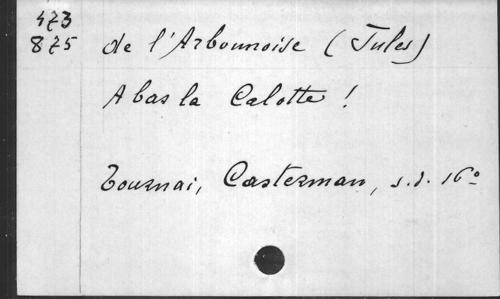 473
875 de l'Arbounoise (Jules)
A bas la Calotte !
Tournai, Casterman, s.d. 16º